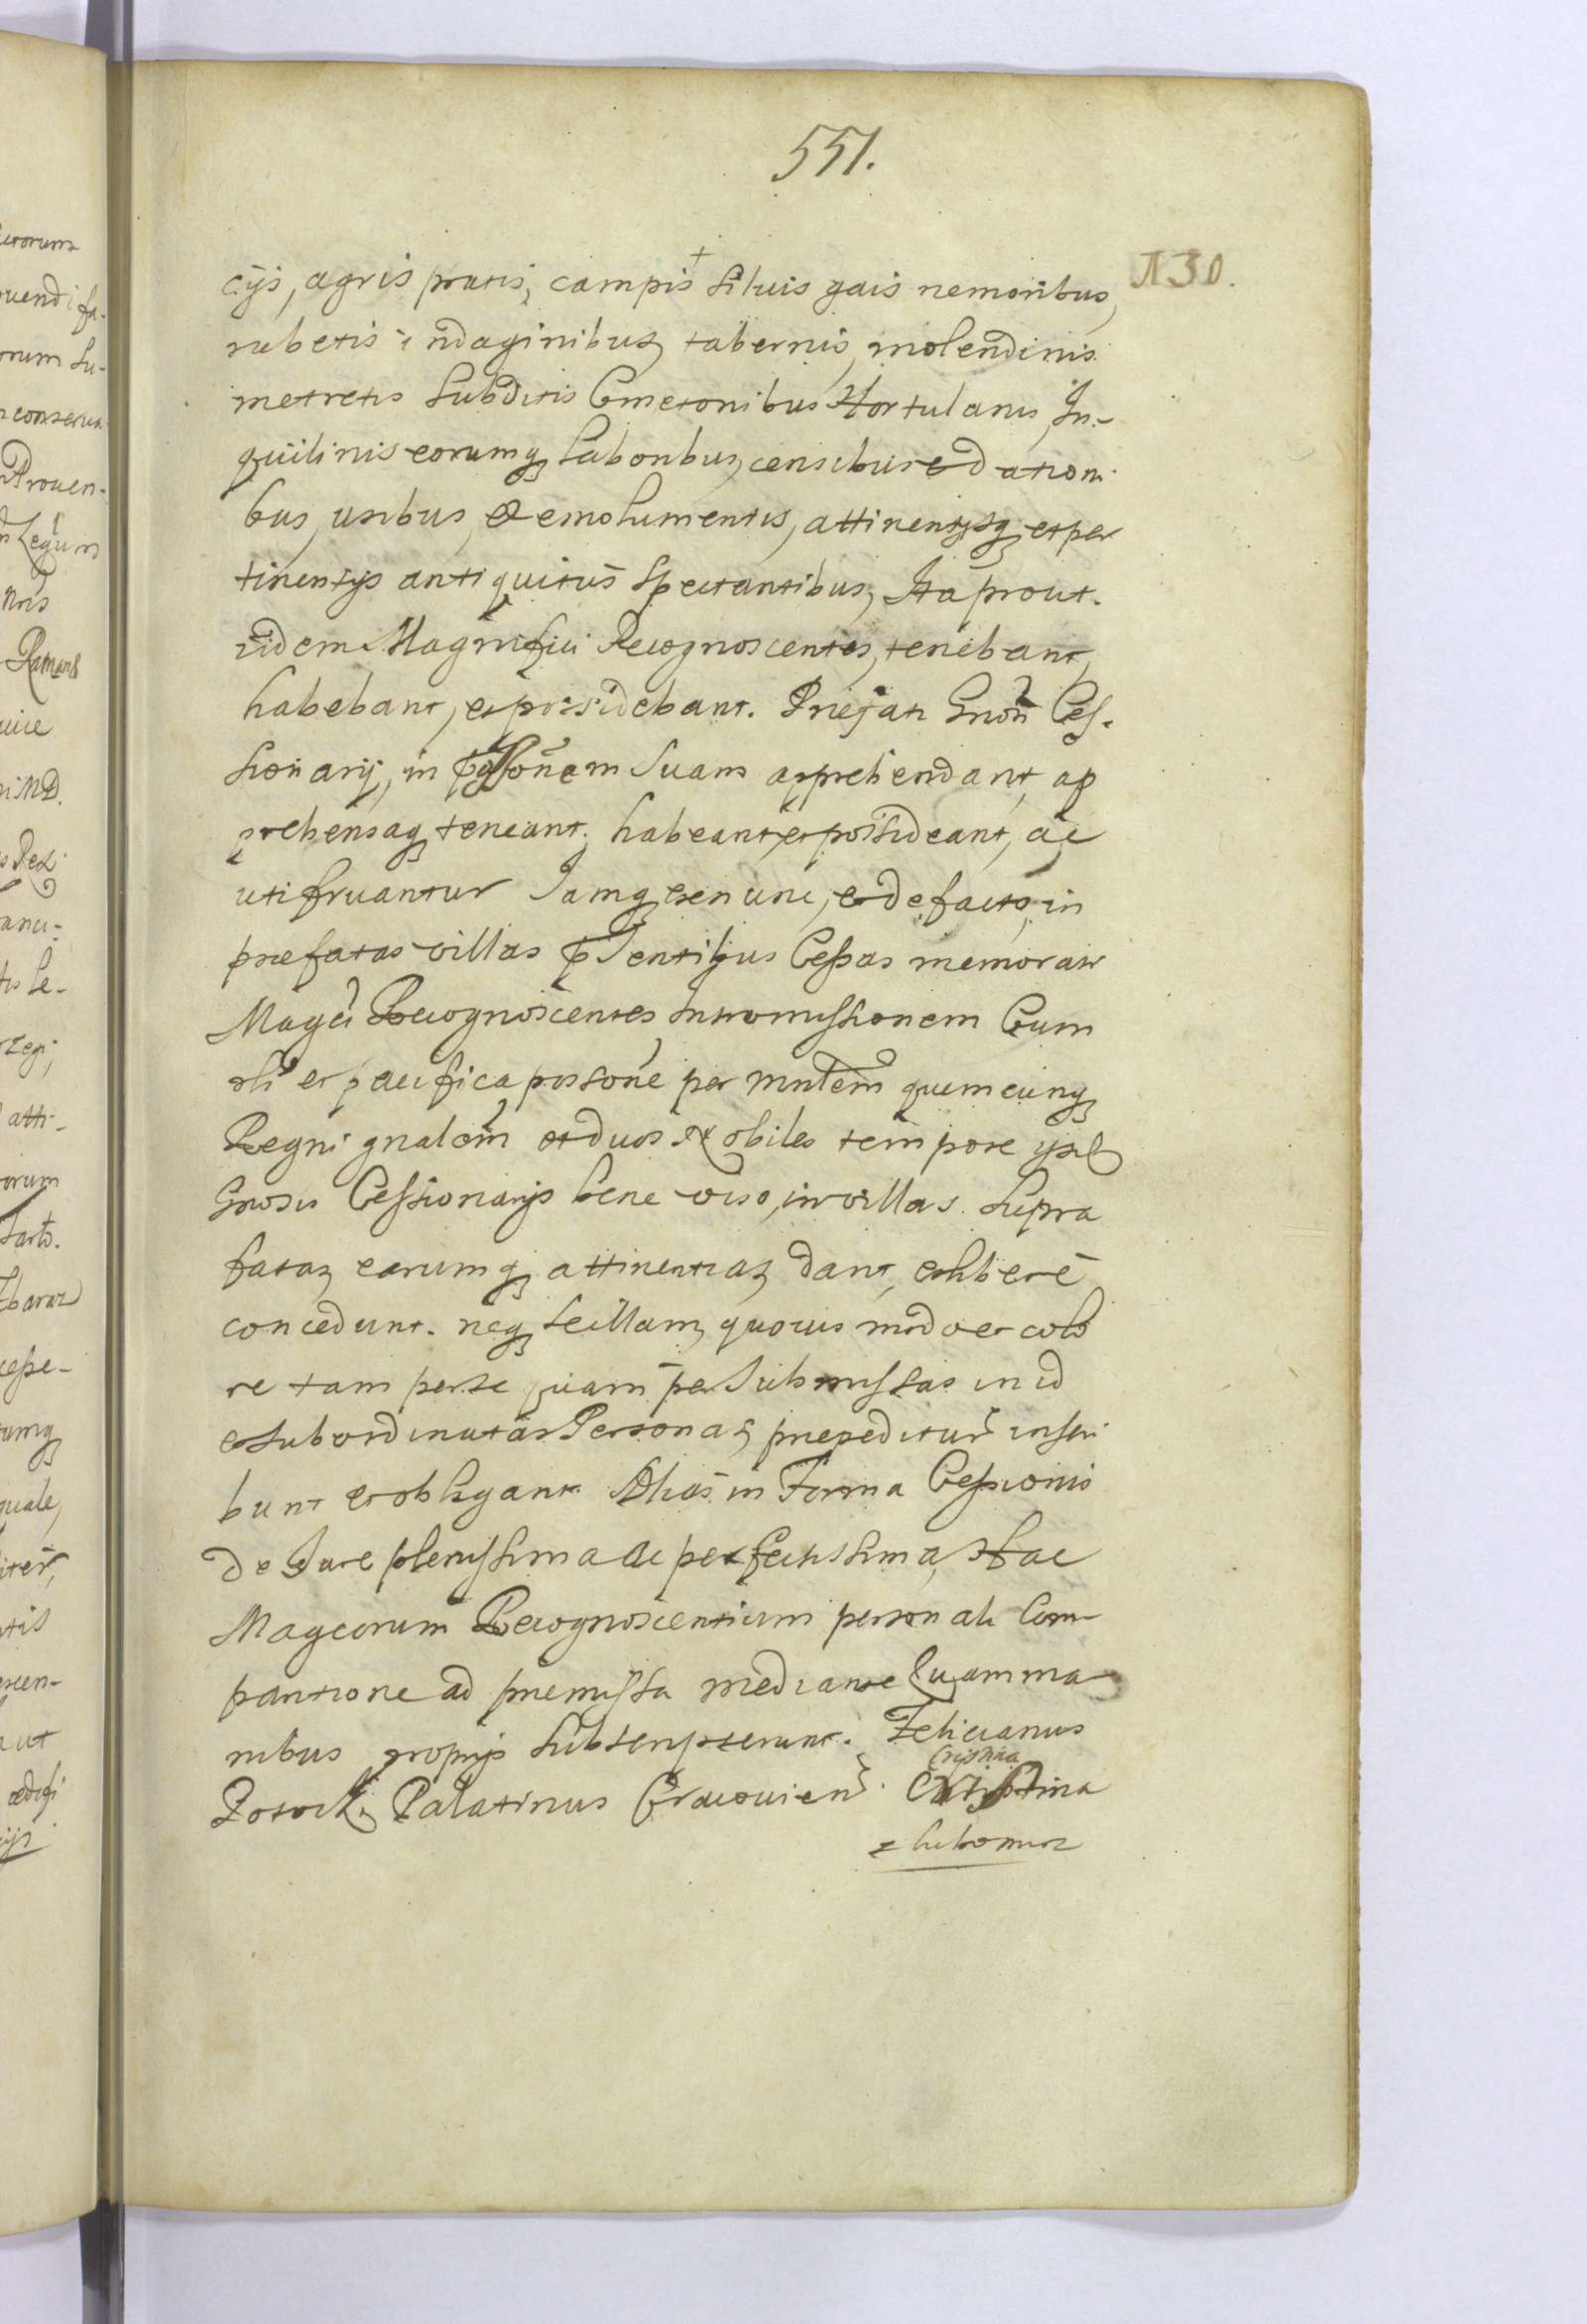 551.
N 30.
cijs, agris pratis, campis + siluis gais nemoribus,
rubetis indaginibus, tabernis, molendinis
metretis subditis Cmetonibus Hortulanis, In-
quilinis eorumq laboribus, censibus et dationi
bus, usibus, et emolumentis, attinentijsq et per
tinentijs antiquitus spectantibus, Ita prout.
iidem Magnifici Recognoscentes, tenebant,
habebant, et possidebant. Prefati Gnosi Ces-
sionarij, in possonem suam apprehendant, ap
prehensaq teneant, habeant, et possideant, ac
utifruantur Iamq exnunc, et de facto, in
prefatas villas pntibus Cessas memorati
Magci Recognoscentes, Intromissionem Cum
rli et pacifica possone per Mntlem quemcunq
Regni gnalem et duos Nobiles tempore ipsis
Gnosis Cessionarijs bene viso, in villas supra
fatas, earumq attinentias, dant, et libere
concedunt. neq se illam, quouis modo et colo
re tam per se quam per submissas in id
et subordinatas Personas, prepedituros inscri
bunt et obligant. Alias in Forma Cessionis
de Iure plenissima ac perfectissima, Hac
Magcorum Recognoscentium personali Com-
paritione ad premissa mediante Quam ma
nibus proprijs subscripserunt. Felicianus
Cristina
Potocki Palatinus Cracouien. Cristina
z Lubomirz